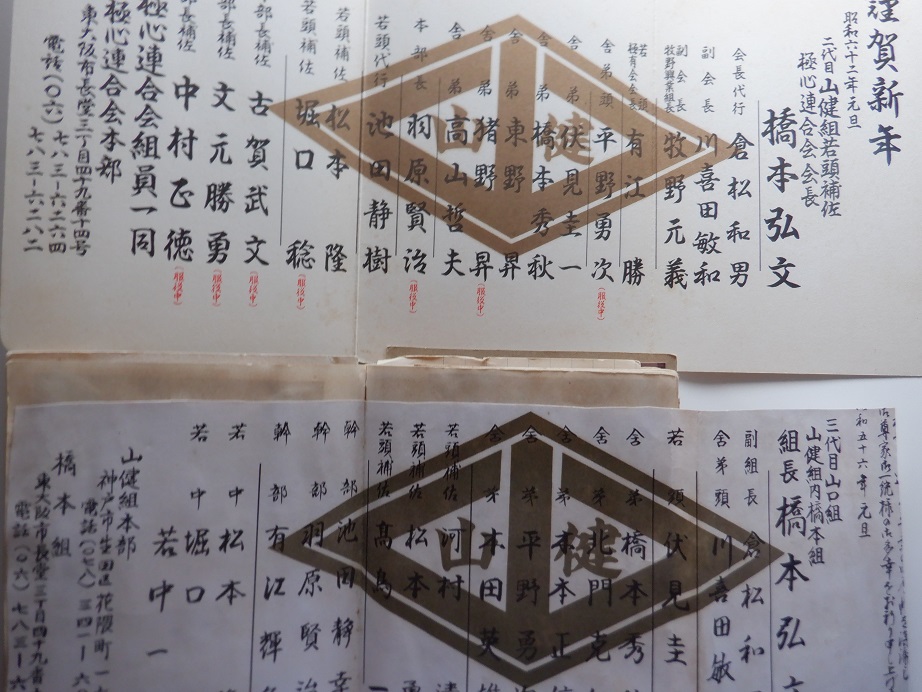 謹賀新年
昭和六十二年元旦
二代目山健組若頭補佐
極心連合会会長
橋本弘文
会長代行 倉松和男
副会長 川喜田敏和
副会長
牧野興業組長 牧野元義
若頭
極有会会長 有江勝
舎弟頭 平野勇次 (服役中)
舎弟 伏見圭一
舎弟 橋本秀秋
舎弟 東野昇
舎弟 猪野昇 (服役中)
舎弟 高山哲夫
本部長 羽原賢治 (服役中)
若頭代行 池田静樹
若頭補佐 松本隆
若頭補佐 堀口稔 (服役中)
部長補佐 古賀武文 (服役中)
部長補佐 文元勝勇 (服役中)
部長補佐 中村正徳 (服役中)
極心連合会組員一同
極心連合会本部
東大阪市長堂三丁目四十九番十四号
電話(〇六)七八三-六二六四
七八三-六二八二
山健
和五十六年元旦
三代目山口組
山健組内橋本組
組長橋本弘
副組長 倉松和
舎弟頭 川喜田敏
若頭 伏見圭
舎弟 橋本秀
舎弟 北門克
舎弟 本本正
舎弟 平野勇
舎弟 本田英
若頭補佐 河村
若頭補佐 松本
若頭補佐 髙島
幹部 池田静
幹部 羽原賢治
幹部 有江輝
若中 松本
若中 堀口
若中一
山健組本部
神戸市生田区花隈町一
電話(〇七八)三四一-六
橋本組
東大阪市長堂三丁目四十九番
電話(〇六)七八三-
山健